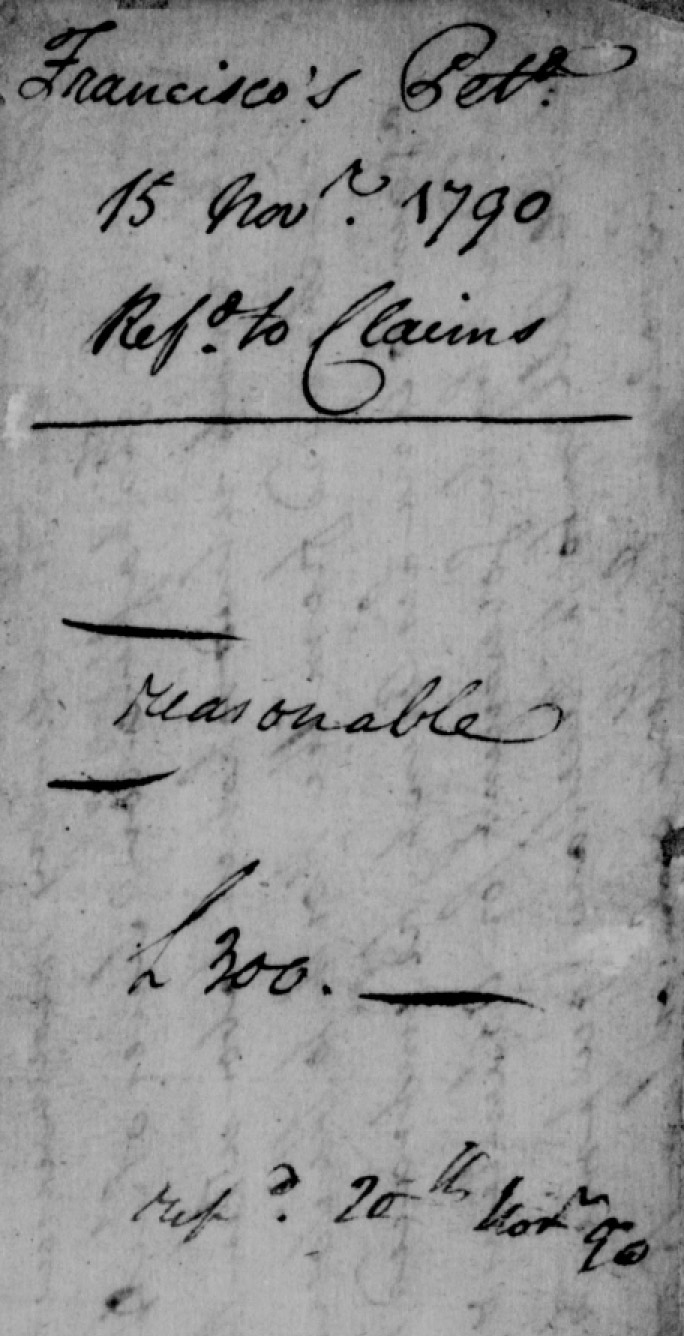 Francisco's Petn.
15 Novr. 1790
Refd. to Claims
reasonable
£300.
repd. 20th Novr 90